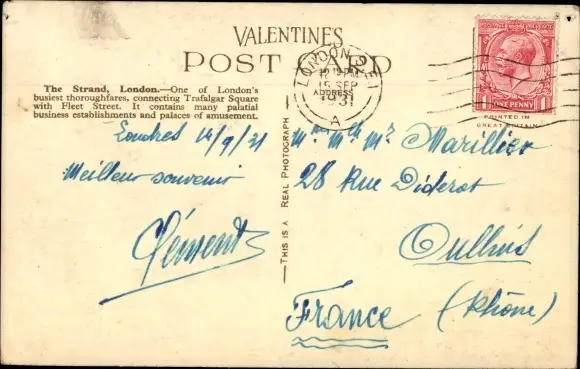 VALENTINES
POST CARD
The Strand, London.—One of London's
busiest thoroughfares, connecting Trafalgar Square
with Fleet Street. It contains many palatial
business establishments and palaces of amusement.
ADDRESS
LONDON
12 15 PM
15 SEP
1931
A
ONE PENNY
PRINTED IN
GREAT BRITAIN
THIS IS A REAL PHOTOGRAPH
Londres 14/9/31
Meilleur souvenir
Clément
Mr Mme Marillier
28 Rue Diderot
Oullins
(Rhône)
France